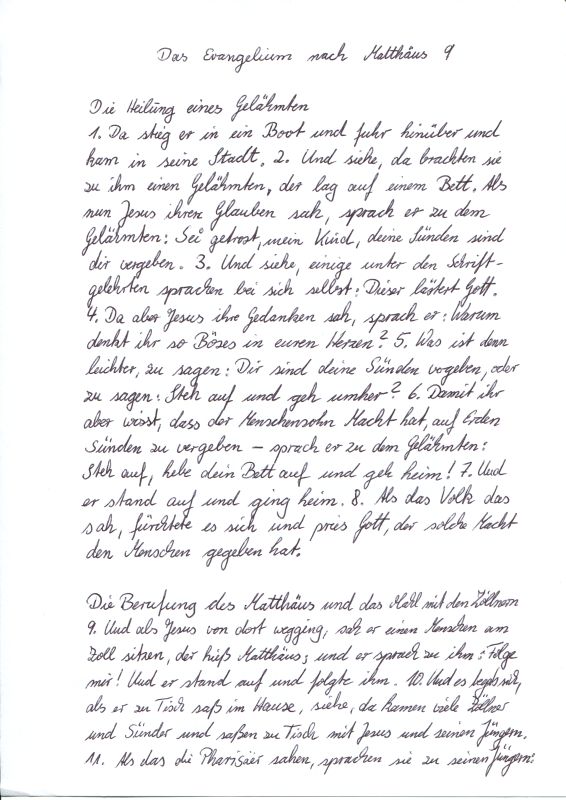 Das Evangelium nach Matthäus 9
Die Heilung eines Gelähmten
1. Da stieg er in ein Boot und fuhr hinüber und
kam in seine Stadt. 2. Und siehe, da brachten sie
zu ihm einen Gelähmten, der lag auf einem Bett. Als
nun Jesus ihren Glauben sah, sprach er zu dem
Gelähmten: Sei getrost, mein Kind, deine Sünden sind
dir vergeben. 3. Und siehe, einige unter den Schrift-
gelehrten sprachen bei sich selbst: Dieser lästert Gott.
4. Da aber Jesus ihre Gedanken sah, sprach er: Warum
denkt ihr so Böses in euren Herzen? 5. Was ist denn
leichter, zu sagen: Dir sind deine Sünden vergeben, oder
zu sagen: Steh auf und geh umher? 6. Damit ihr
aber wisst, dass der Menschensohn Macht hat, auf Erden
Sünden zu vergeben – sprach er zu dem Gelähmten:
Steh auf, hebe dein Bett auf und geh heim! 7. Und
er stand auf und ging heim. 8. Als das Volk das
sah, fürchtete es sich und pries Gott, der solche Macht
den Menschen gegeben hat.
Die Berufung des Matthäus und das Mahl mit den Zöllnern
9. Und als Jesus von dort wegging, sah er einen Menschen am
Zoll sitzen, der hieß Matthäus; und er sprach zu ihm: Folge
mir! Und er stand auf und folgte ihm. 10. Und es begab sich,
als er zu Tisch saß im Hause, siehe, da kamen viele Zöllner
und Sünder und saßen zu Tisch mit Jesus und seinen Jüngern.
11. Als das die Pharisäer sahen, sprachen sie zu seinen Jüngern: